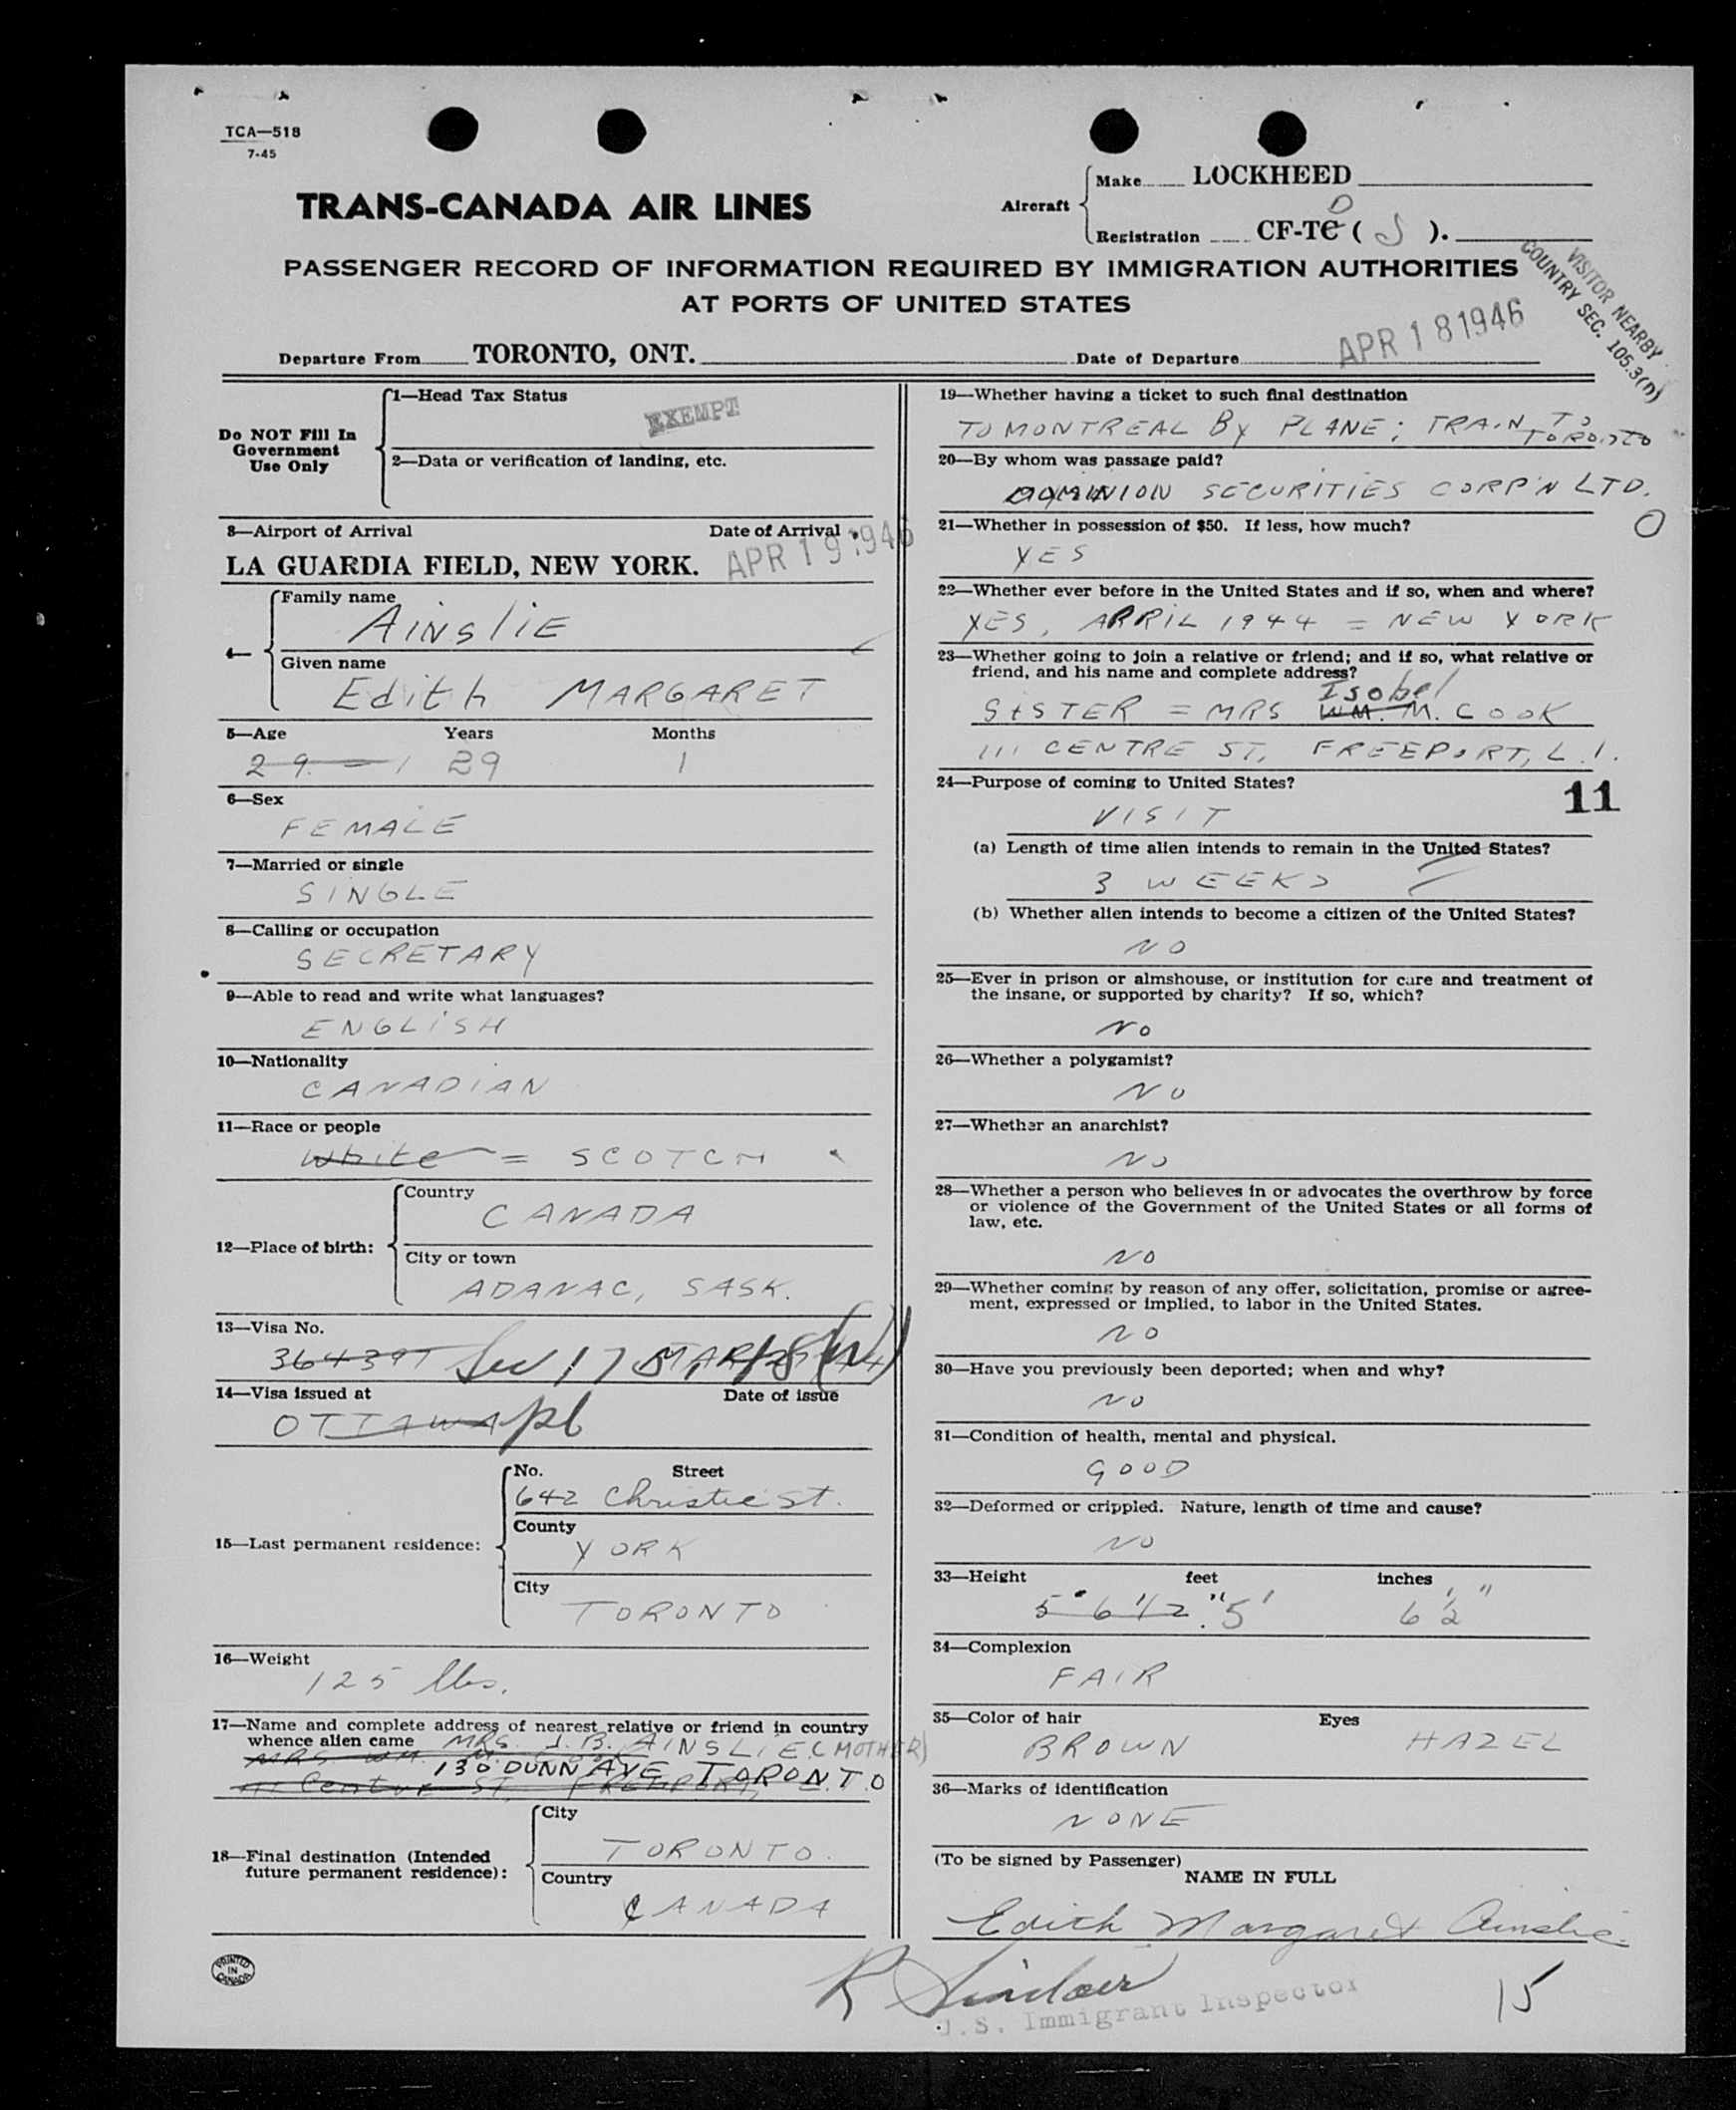 TCA—518
7-45
TRANS-CANADA AIR LINES
Aircraft
Make LOCKHEED
Registration CF-TC D ( J ).
PASSENGER RECORD OF INFORMATION REQUIRED BY IMMIGRATION AUTHORITIES
AT PORTS OF UNITED STATES
VISITOR NEARBY
COUNTRY SEC. 105.3(n)
Departure From TORONTO, ONT. Date of Departure APR 18 1946
Do NOT Fill In
Government
Use Only
1—Head Tax Status
EXEMPT
2—Data or verification of landing, etc.
3—Airport of Arrival Date of Arrival
LA GUARDIA FIELD, NEW YORK. APR 19 1946
4—
Family name
AINSLIE
Given name
Edith MARGARET
5—Age Years Months
29 - 1 29 1
6—Sex
FEMALE
7—Married or single
SINGLE
8—Calling or occupation
SECRETARY
9—Able to read and write what languages?
ENGLISH
10—Nationality
CANADIAN
11—Race or people
White = SCOTCH
12—Place of birth:
Country
CANADA
City or town
ADANAC, SASK.
13—Visa No.
364397 Sec 175.
14—Visa issued at Date of issue
OTTAWA
15—Last permanent residence:
No. Street
642 Christie St.
County
YORK
City
TORONTO
16—Weight
125 lbs.
17—Name and complete address of nearest relative or friend in country
whence alien came MRS. J. B. AINSLIE (MOTHER)
MRS WM. M. COOK
130 DUNN AVE TORONTO
111 Centre ST, FREEPORT,
18—Final destination (Intended
future permanent residence):
City
TORONTO.
Country
CANADA
PRINTED
IN
CANADA
19—Whether having a ticket to such final destination
TO MONTREAL BY PLANE; TRAIN TO
TORONTO
20—By whom was passage paid?
DOMINION SECURITIES CORP'N LTD.
21—Whether in possession of $50. If less, how much?
YES
22—Whether ever before in the United States and if so, when and where?
YES, APRIL 1944 = NEW YORK
23—Whether going to join a relative or friend; and if so, what relative or
friend, and his name and complete address?
Isobel
SISTER = MRS WM. M. COOK
111 CENTRE ST, FREEPORT, L.I.
24—Purpose of coming to United States?
11
VISIT
(a) Length of time alien intends to remain in the United States?
3 WEEKS
(b) Whether alien intends to become a citizen of the United States?
NO
25—Ever in prison or almshouse, or institution for care and treatment of
the insane, or supported by charity? If so, which?
NO
26—Whether a polygamist?
NO
27—Whether an anarchist?
NO
28—Whether a person who believes in or advocates the overthrow by force
or violence of the Government of the United States or all forms of
law, etc.
NO
29—Whether coming by reason of any offer, solicitation, promise or agree-
ment, expressed or implied, to labor in the United States.
NO
30—Have you previously been deported; when and why?
NO
31—Condition of health, mental and physical.
GOOD
32—Deformed or crippled. Nature, length of time and cause?
NO
33—Height feet inches
5' 6 1/2" 5' 6 1/2"
34—Complexion
FAIR
35—Color of hair Eyes
BROWN HAZEL
36—Marks of identification
NONE
(To be signed by Passenger)
NAME IN FULL
Edith Margaret Ainslie
R Sinclair
U.S. Immigrant Inspector
15